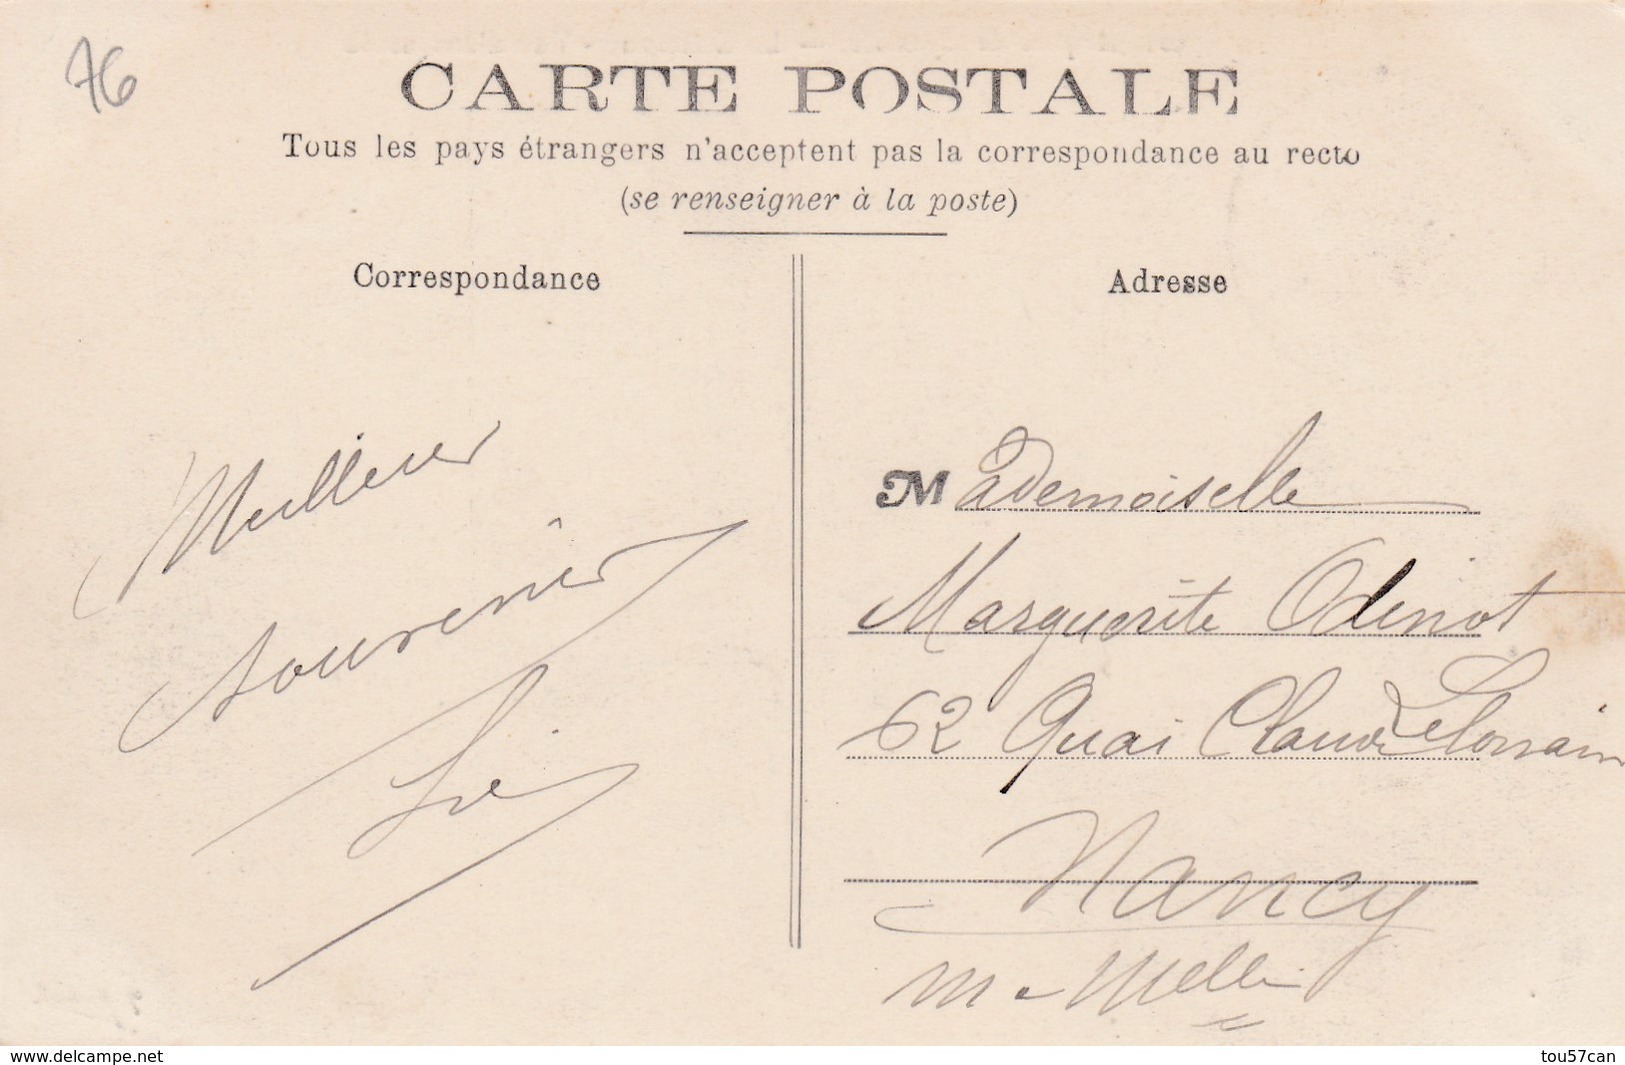 76
CARTE POSTALE
Tous les pays étrangers n'acceptent pas la correspondance au recto
(se renseigner à la poste)
Correspondance
Meilleur
souvenir
Adresse
Mademoiselle
Marguerite Odinot
62 Quai Claude Lelorrain
Nancy
M &
www.delcampe.net
tou57can